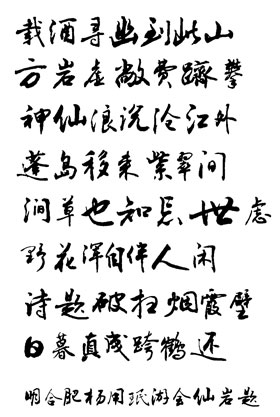 载酒寻幽到此山
方岩虚敞费跻攀
神仙浪说沧江外
蓬岛移来紫翠间
涧草也知忘世虑
野花浑自伴人闲
诗题破扫烟霞壁
日暮真成跨鹤还
明合肥杨用珉游金仙岩题